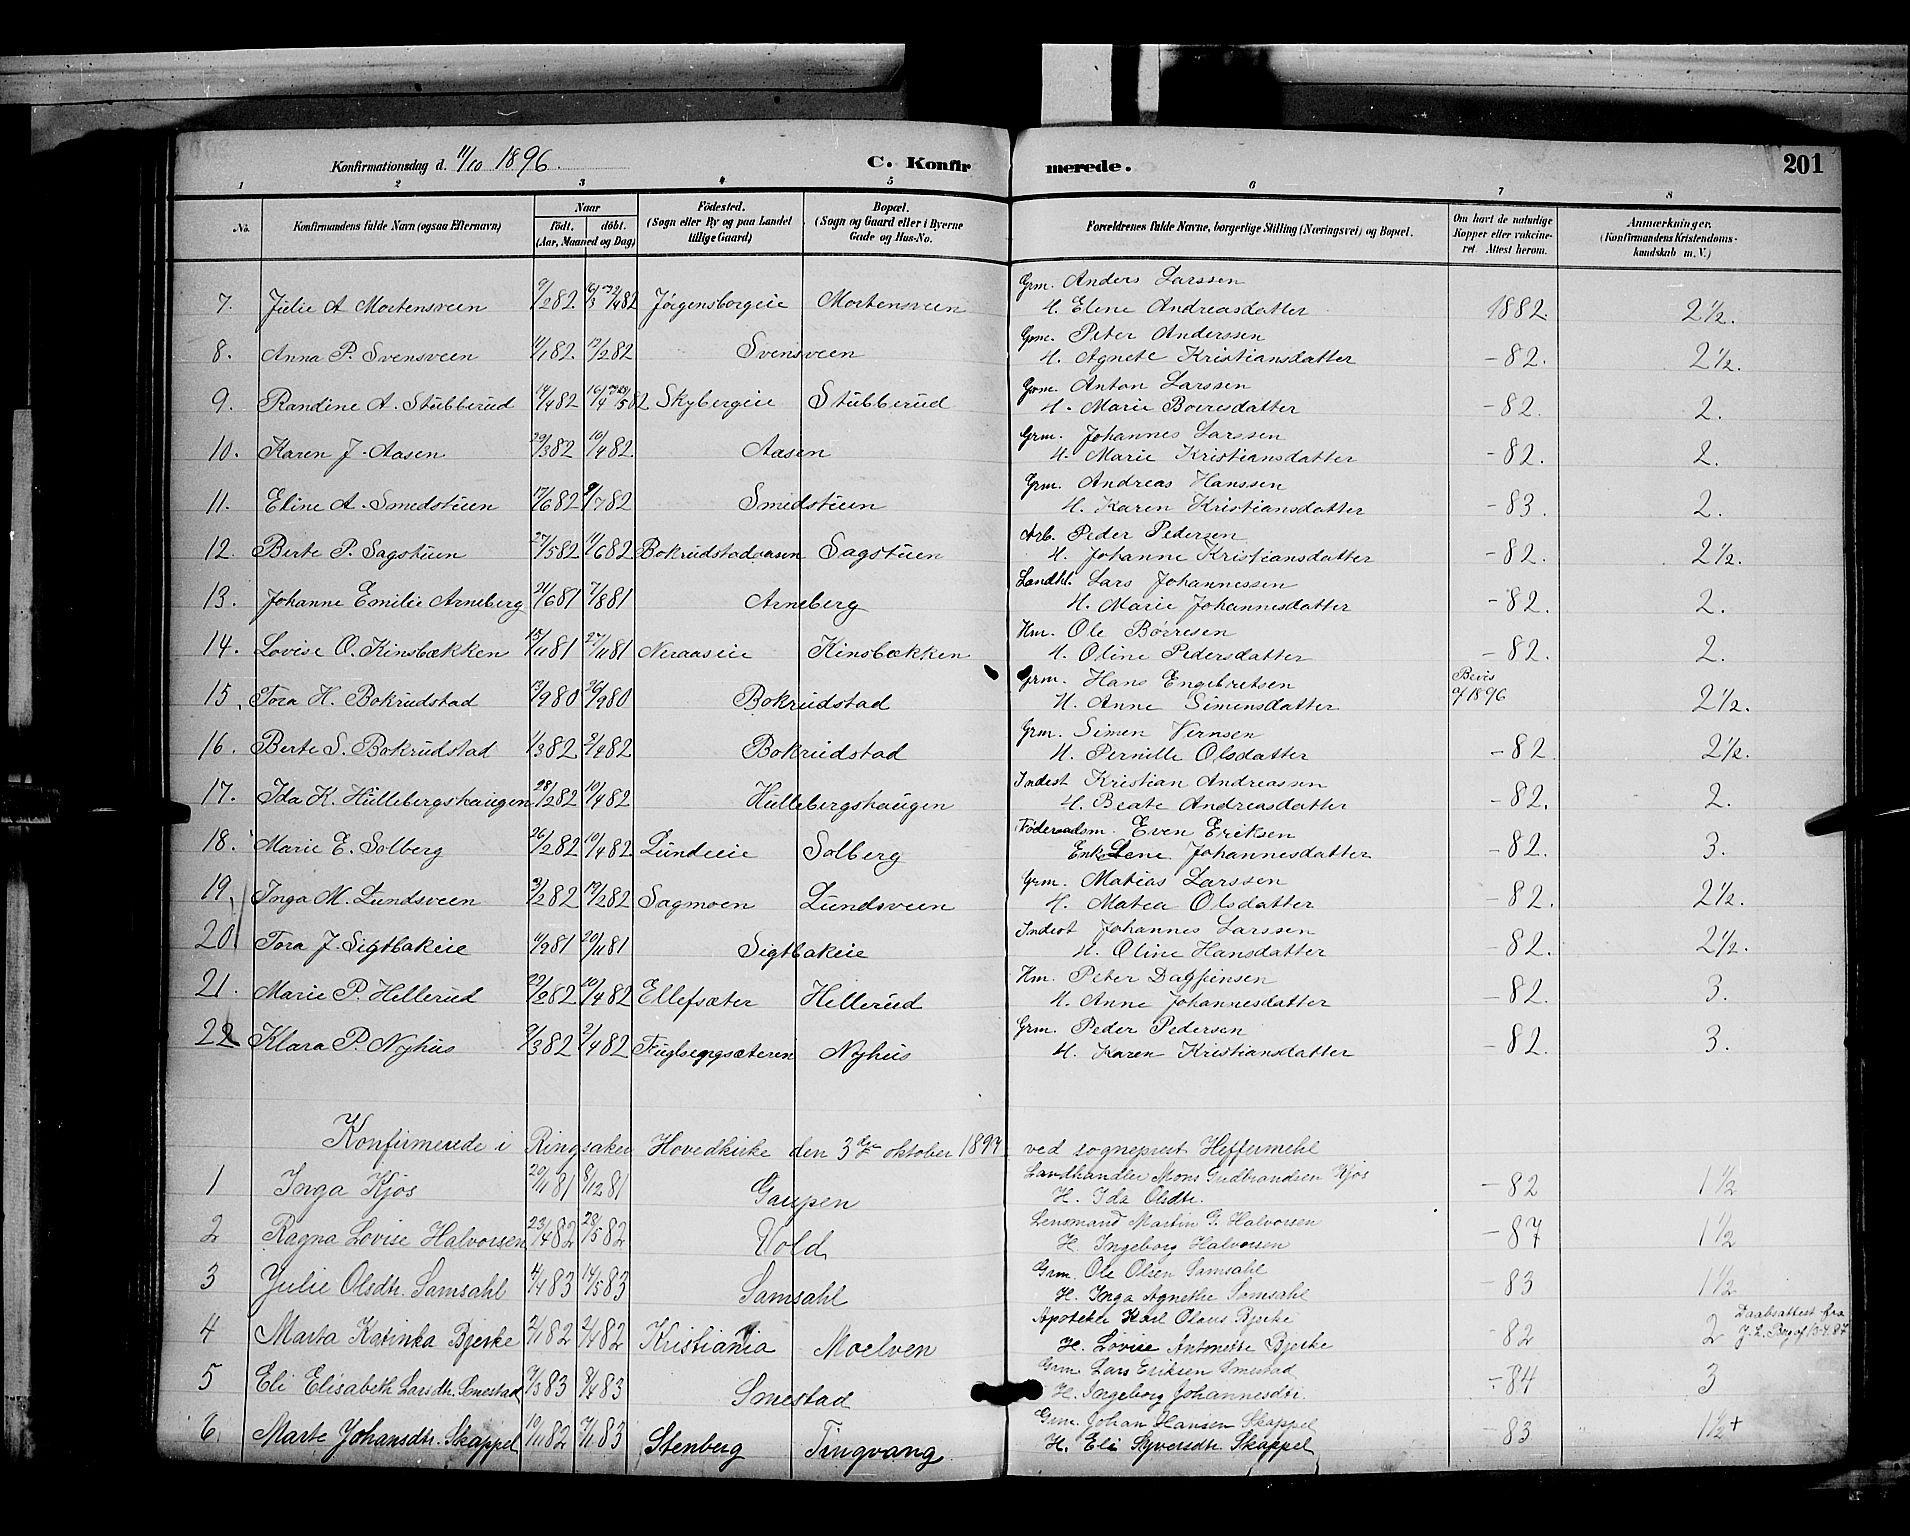 Konfirmationsdag d. 11/10 1896. C. Konfirmerede. 201
1 2 3 4 5 6 7 8
No. Konfirmandens fulde Navn (ogsaa Efternavn) Naar født. døbt. (Aar, Maaned og Dag) Fødested. (Sogn eller By og paa Landet tillige Gaard) Bopæl. (Sogn og Gaard eller i Byerne Gade og Hus-No. Forældrenes fulde Navne, borgerlige Stilling (Næringsvei) og Bopæl. Om havt de naturlige Kopper eller vakcineret. Attest herom. Anmærkninger. (Konfirmandens Kristendomskundskab m. V.)
7. Julie A Mortensveen 9/2 82 Jørgensborgeie Mortensveen Grm. Anders Larssen
H. Eline Andreasdatter 1882. 2 1/2.
8. Anna P. Svensveen 11/1 82. 12/2 82 Svensveen Grm. Peter Anderssen
H. Agnete Kristiansdatter -82. 2 1/2.
9. Randine A. Stubberud 14/4 82 Skybergeie Stubberud Grm. Anton Larssen
H. Marie Boeresdatter -82. 2.
10. Karen J. Aasen 29/3 82 10/4 82. Aasen Grm. Johannes Larssen
H. Marie Kristiansdatter -82. 2.
11. Eline A. Smedstuen 17/6 82 9/7 82 Smedstuen Grm. Andreas Hanssen
H. Karen Kristiansdatter -83. 2.
12. Berte P. Sagstuen 27/5 82 11/6 82 Bokrudstadaasen Sagstuen Arb. Peder Pedersen
H. Johanne Kristiansdatter -82. 2 1/2.
13. Johanne Emilie Arneberg 21/6 81 7/8 81 Arneberg Landhl. Lars Johannessen
H. Marie Johannesdatter -82. 2.
14. Lovise O. Kinsbækken 15/11 81 27/11 81 Neraaseie Kinsbækken Hm. Ole Børresen
H. Oline Pedersdatter -82. 2.
15. Tora H. Bokrudstad 12/9 80 26/9 80 Bokrudstad Grm. Hans Engebretsen Bevis
H. Anne Simensdatter 1896 2 1/2.
16. Berte S. Bokrudstad 1/3 82 2/4 82 Bokrudstad Grm. Simen Vernsen
H. Pernille Olsdatter -82. 2 1/2.
17. Ida K. Hullebergshaugen 28/2 82 10/4 82 Hullebergshaugen Inderst Kristian Andreassen
H. Beate Andreasdatter -82. 2.
18. Marie E. Solberg 26/2 82 10/4 82 Lundeeie Solberg Føderaadsm. Even Eriksen
Enke Lene Johannesdatter -82. 3.
19. Inga M. Lundsveen 3/2 82 19/2 82 Sagmoen Lundsveen Grm. Matias Larssen
H. Matea Olsdatter -82. 2 1/2.
20. Tora J. Sigtbakeie 11/9 81 20/11 81 Sigtbakeie Inderst Johannes Larssen
H. Oline Hansdatter -82. 2 1/2.
21. Marie P. Hellerud 22/2 82 10/4 82 Ellefsæter Hellerud Hm. Peter Dagfinsen
H. Anne Johannesdatter -82. 3.
22 Klara P. Nyhus 9/3 82 2/4 82 Fuglsengsæteren Nyhus Grm. Peder Pedersen
H. Karen Kristiansdatter -82. 3.
Konfirmerede i Ringsaker Hovedkirke den 3die oktober 1897 ved sogneprest Heffermehl
1 Inga Kjos 20/11 81 8/12 81 Gaupen Landhandler Mons Gudbrandsen Kjos
H. Ida Olsdtr. -82 1 1/2
2 Ragna Lovise Halvorsen 23/4 82 28/5 82 Vold Lensmand Martin G. Halvorsen
H. Ingeborg Halvorsen -87 1 1/2
3 Julie Olsdtr. Samsahl 4/4 83 14/5 83 Samsahl Grm. Ole Olsen Samsahl
H. Inga Agnethe Samsahl -83 1 1/2
4 Marta Katinka Bjerke 2/1 82 2/4 82 Kristiania Moelven Apoteker Karl Olaus Bjerke
H. Lovise Antonette Bjerke -82 2 Daabsattest fra J. L. Berg af 13-4 87
5 Eli Elisabeth Larsdtr. Smestad 7/3 83 8/4 83 Smestad Grm Lars Eriksen Smestad
H. Ingeborg Johannesdtr. -84 3
6. Marte Johansdtr. Skappel 19/11 82 7/1 83 Stenberg Tingvang Grm. Johan Hansen Skappel
H. Eli Syversdtr. Skappel -83 1 1/2+